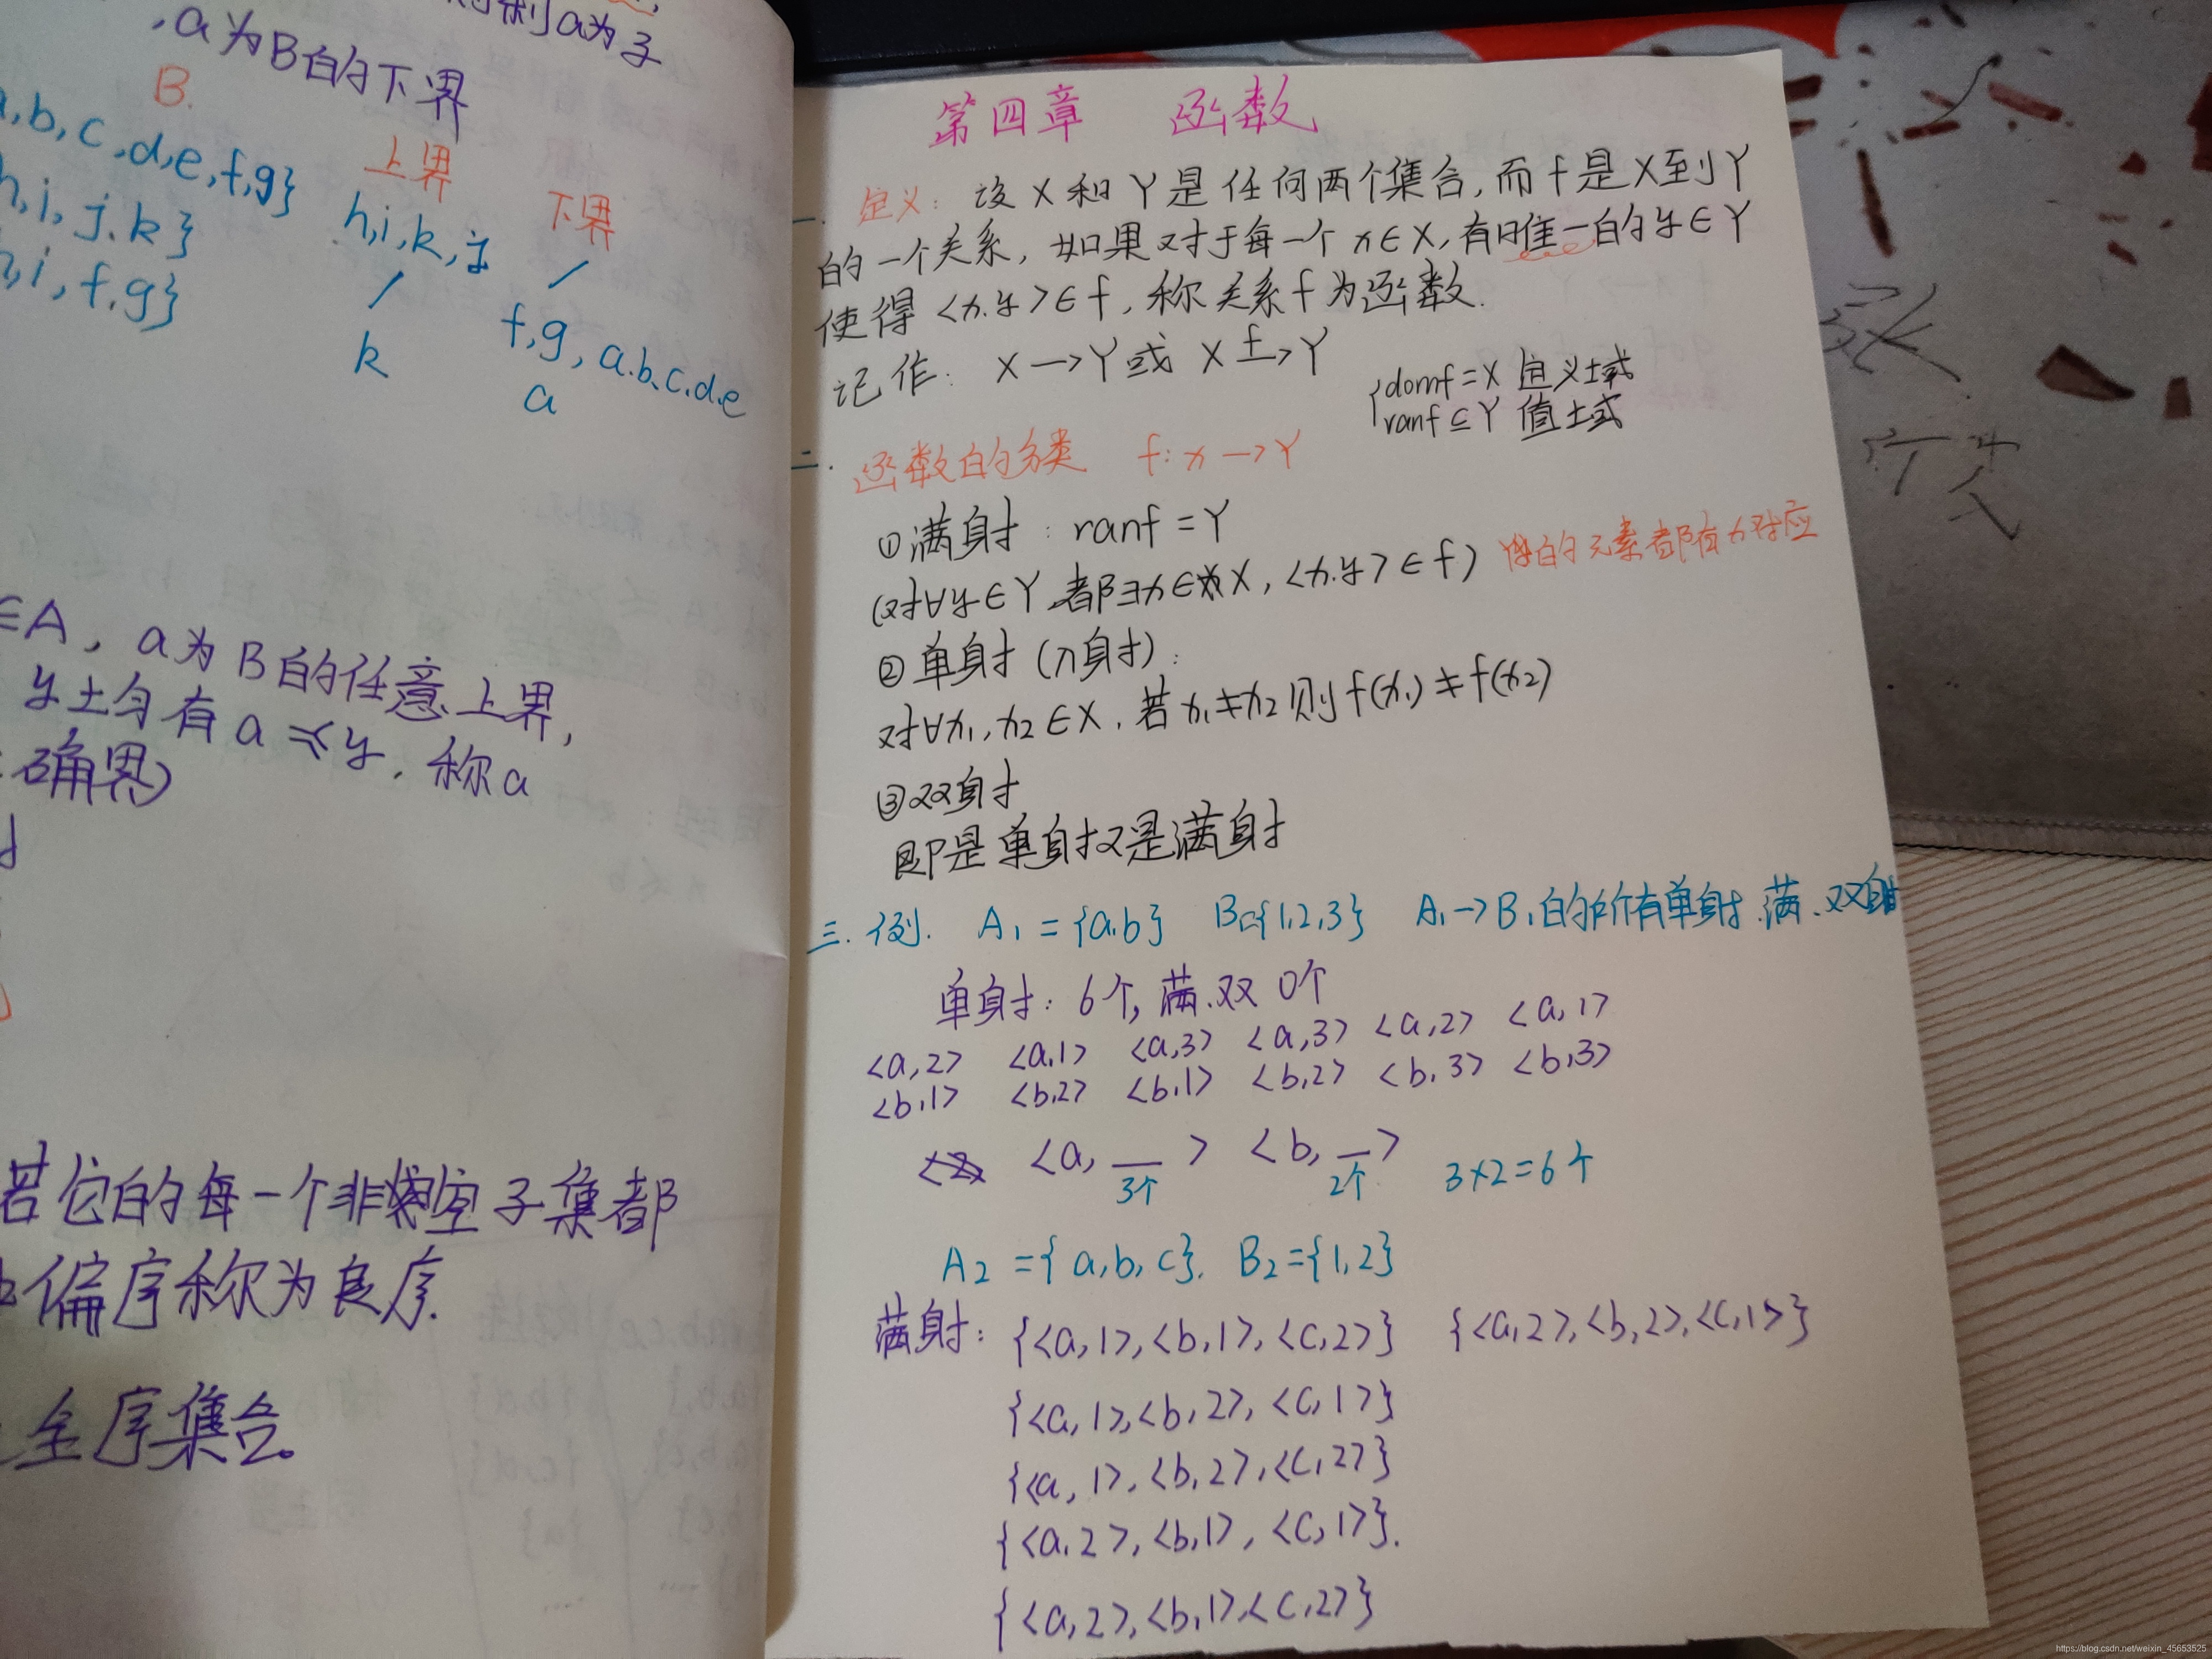 ,a为B的下界
B.
a,b,c,d,e,f,g}
上界
下界
h,i,j,k}
h,i,k,j
h,i,f,g}
k
f,g,a.b.c.d.e
a
∈A, a为B的任意上界,
y均有a≼y, 称a
确界)
若它的每一个非空子集都
偏序称为良序.
全序集合。
第四章 函数
一. 定义: 设X和Y是任何两个集合,而f是X到Y
的一个关系, 如果对于每一个x∈X,有唯一的y∈Y
使得<x.y>∈f, 称关系f为函数.
记作: X→Y或 X f→Y
domf=X 定义域
ranf⊆Y 值域
二. 函数的分类 f:x→Y
①满射: ranf=Y
(对∀y∈Y,都∃x∈X, <x.y>∈f) 的元素都有x对应
②单射(入射):
对∀x₁,x₂∈X, 若x₁≠x₂则f(x₁)≠f(x₂)
③双射
即是单射又是满射
三.例. A₁={a,b} B={1,2,3} A₁→B₁的所有单射.满.双射
单射: 6个,满.双 0个
<a,2> <a,1> <a,3> <a,3> <a,2> <a,1>
<b,1> <b,2> <b,1> <b,2> <b,3> <b,3>
<a, __ > <b, __ > 3×2=6个
3个 2个
A₂={a,b,c}. B₂={1,2}
满射: {<a,1>,<b,1>,<c,2>} {<a,2>,<b,2>,<c,1>}
{<a,1>,<b,2>,<c,1>}
{<a,1>,<b,2>,<c,2>}
{<a,2>,<b,1>,<c,1>}.
{<a,2>,<b,1>,<c,2>}
https://blog.csdn.net/weixin_45653525